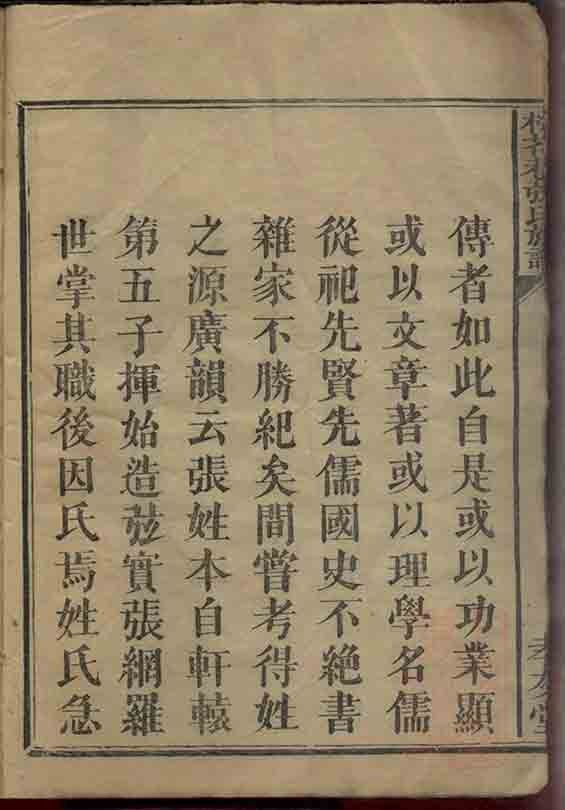 張氏族譜
孝友堂
傳者如此自是或以功業顯
或以文章著或以理學名儒
從祀先賢先儒國史不絕書
雜家不勝紀矣間嘗考得姓
之源廣韻云張姓本自軒轅
第五子揮始造弦實張網羅
世掌其職後因氏焉姓氏急